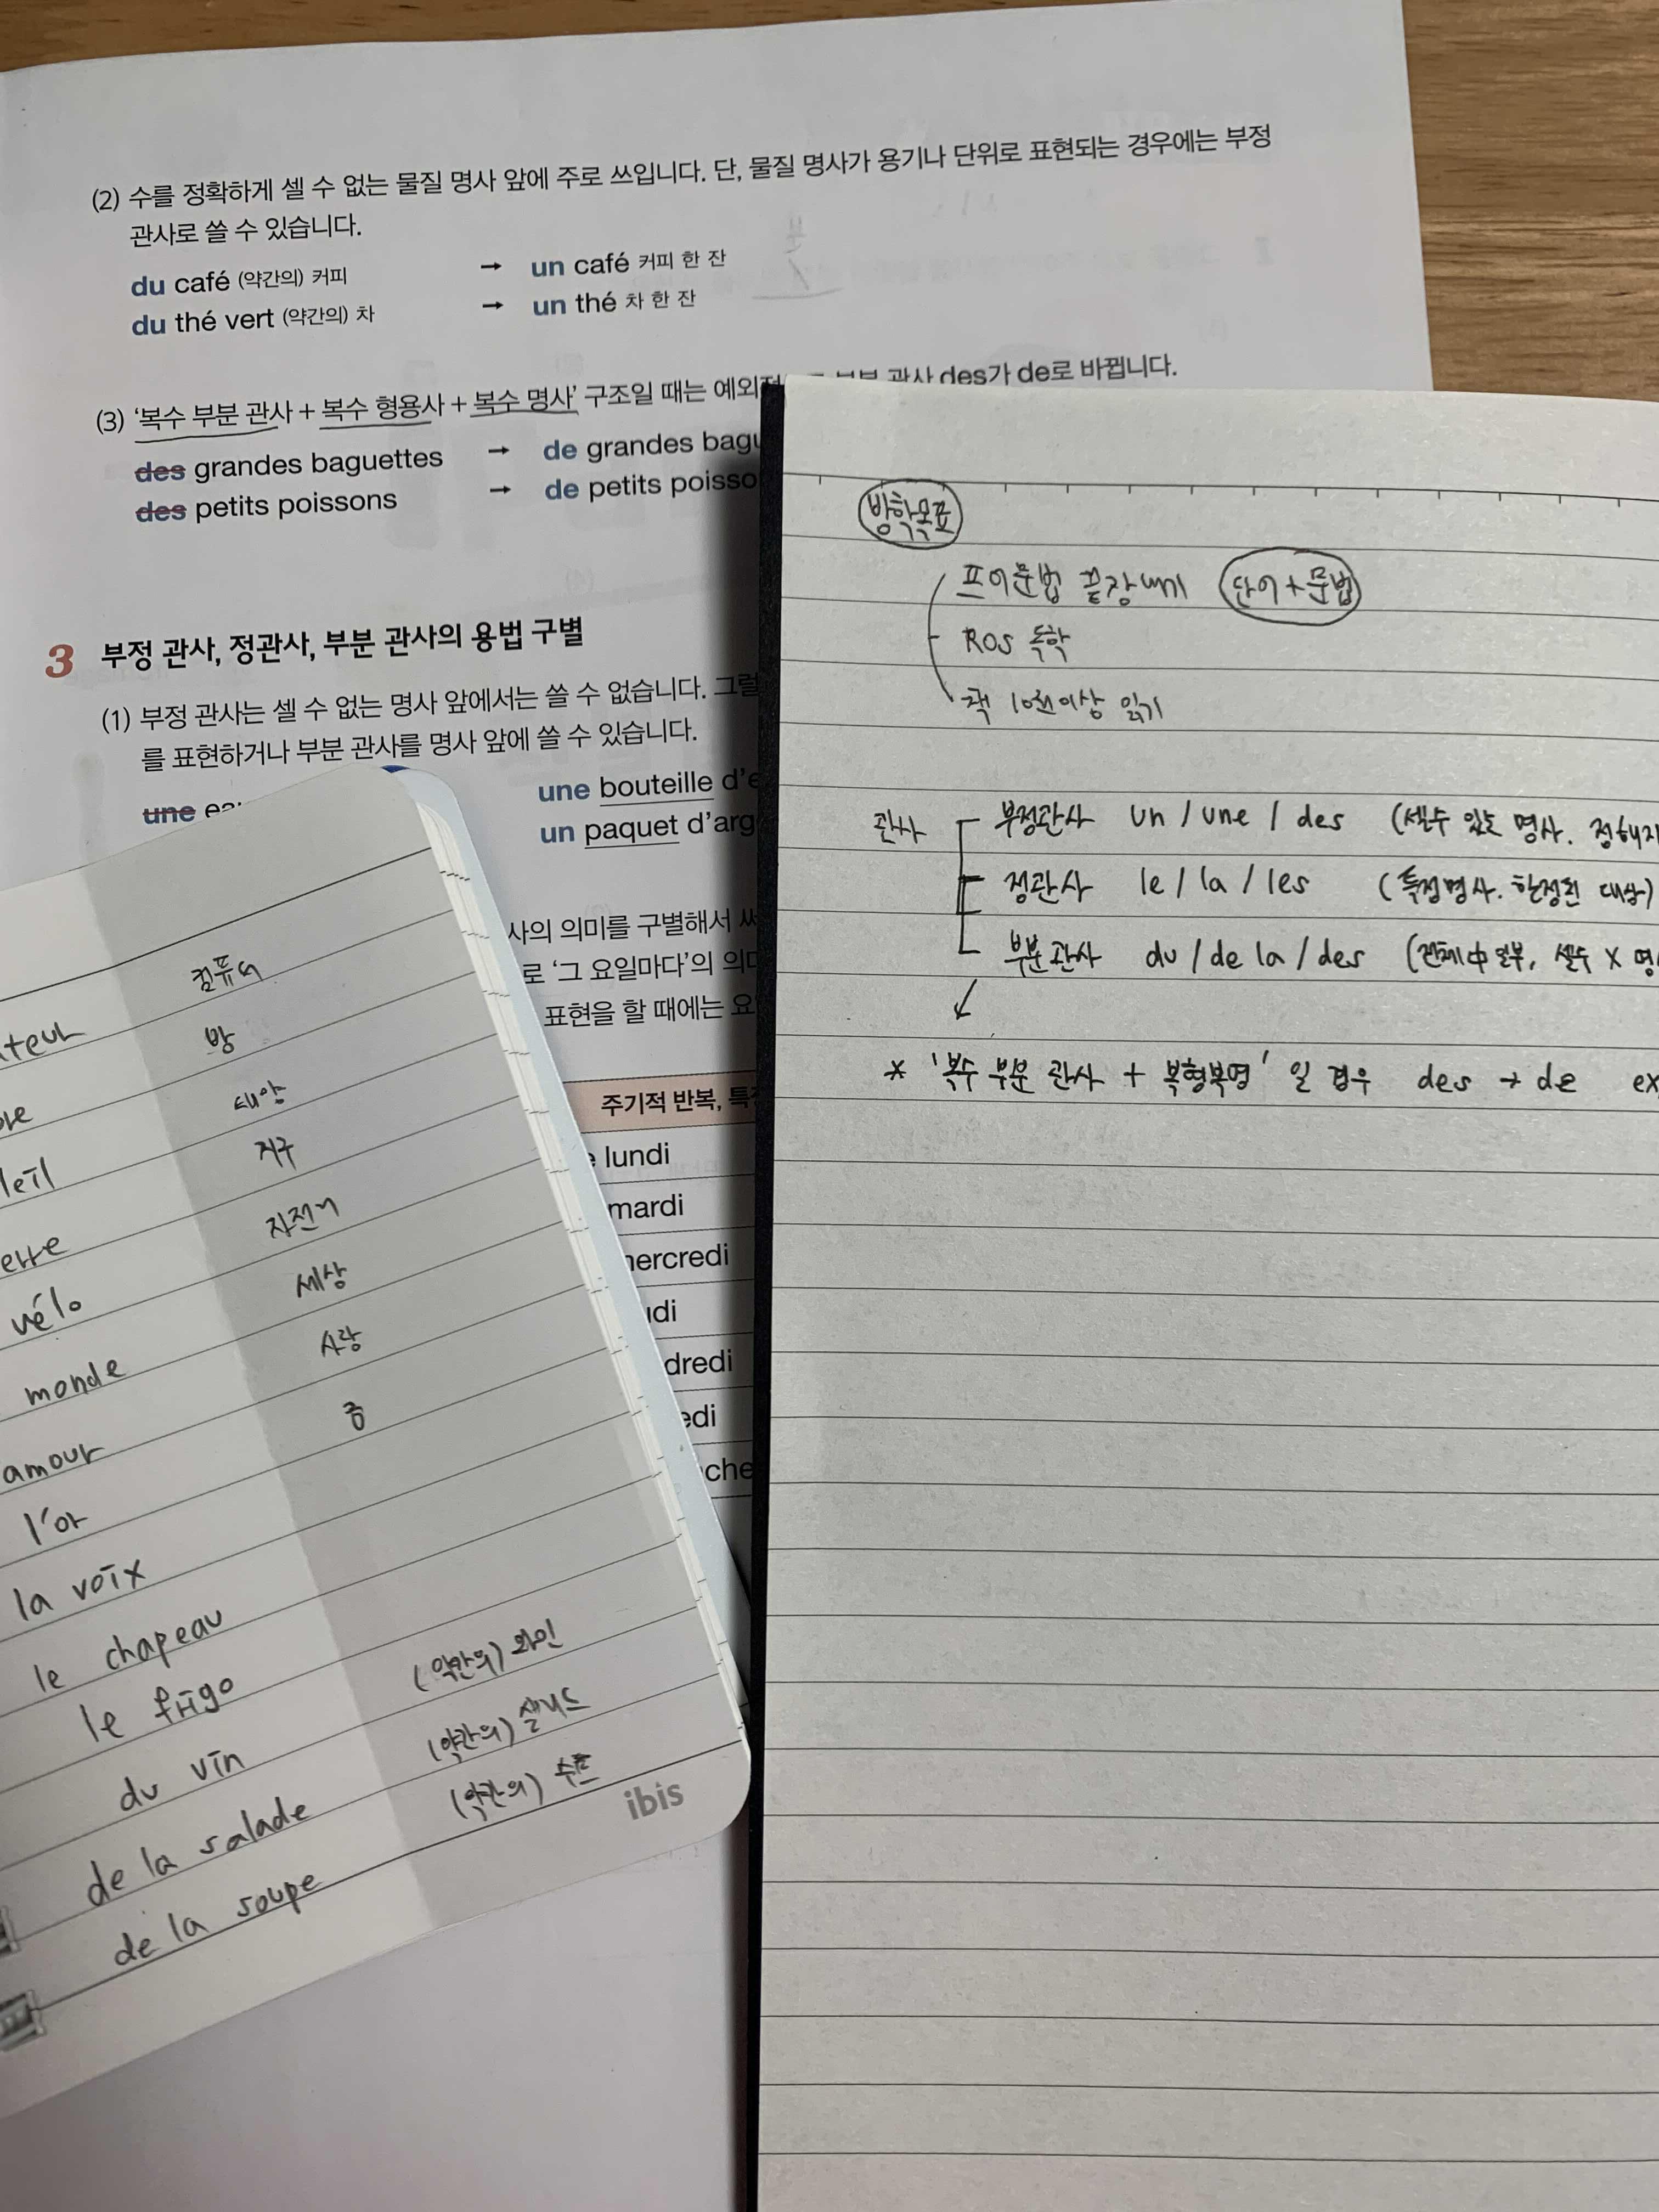 (2) 수를 정확하게 셀 수 없는 물질 명사 앞에 주로 쓰입니다. 단, 물질 명사가 용기나 단위로 표현되는 경우에는 부정
관사로 쓸 수 있습니다.
du café (약간의) 커피 → un café 커피 한 잔
du thé vert (약간의) 차 → un thé 차 한 잔
(3) '복수 부분 관사 + 복수 형용사 + 복수 명사' 구조일 때는 관사 des가 de로 바뀝니다.
des grandes baguettes → de grandes
des petits poissons → de petits
3 부정 관사, 정관사, 부분 관사의 용법 구별
(1) 부정 관사는 셀 수 없는 명사 앞에서는 쓸 수 없습니다.
를 표현하거나 부분 관사를 명사 앞에 쓸 수 있습니다.
une
une bouteille
un paquet
사의 의미를 구별해서
로 '그 요일마다'의
표현을 할 때에는
주기적 반복,
lundi
mardi
컴퓨터
방
태양
지구
vélo 자전거
monde 세상
amour 사랑
l'or 금
la voix
le chapeau
le frigo
du vin (약간의) 와인
de la salade (약간의) 샐러드
de la soupe (약간의) 수프
ibis
방학목표
프어문법 끝장내기 단어+문법
ROS 독학
책 10권이상 읽기
관사
부정관사 un / une / des (셀수 있는 명사.
정관사 le / la / les (특정명사. 한정된 대상)
부분관사 du / de la / des (전체中 일부, 셀수 X
* '복수 부분 관사 + 복형복명' 일 경우 des → de ex